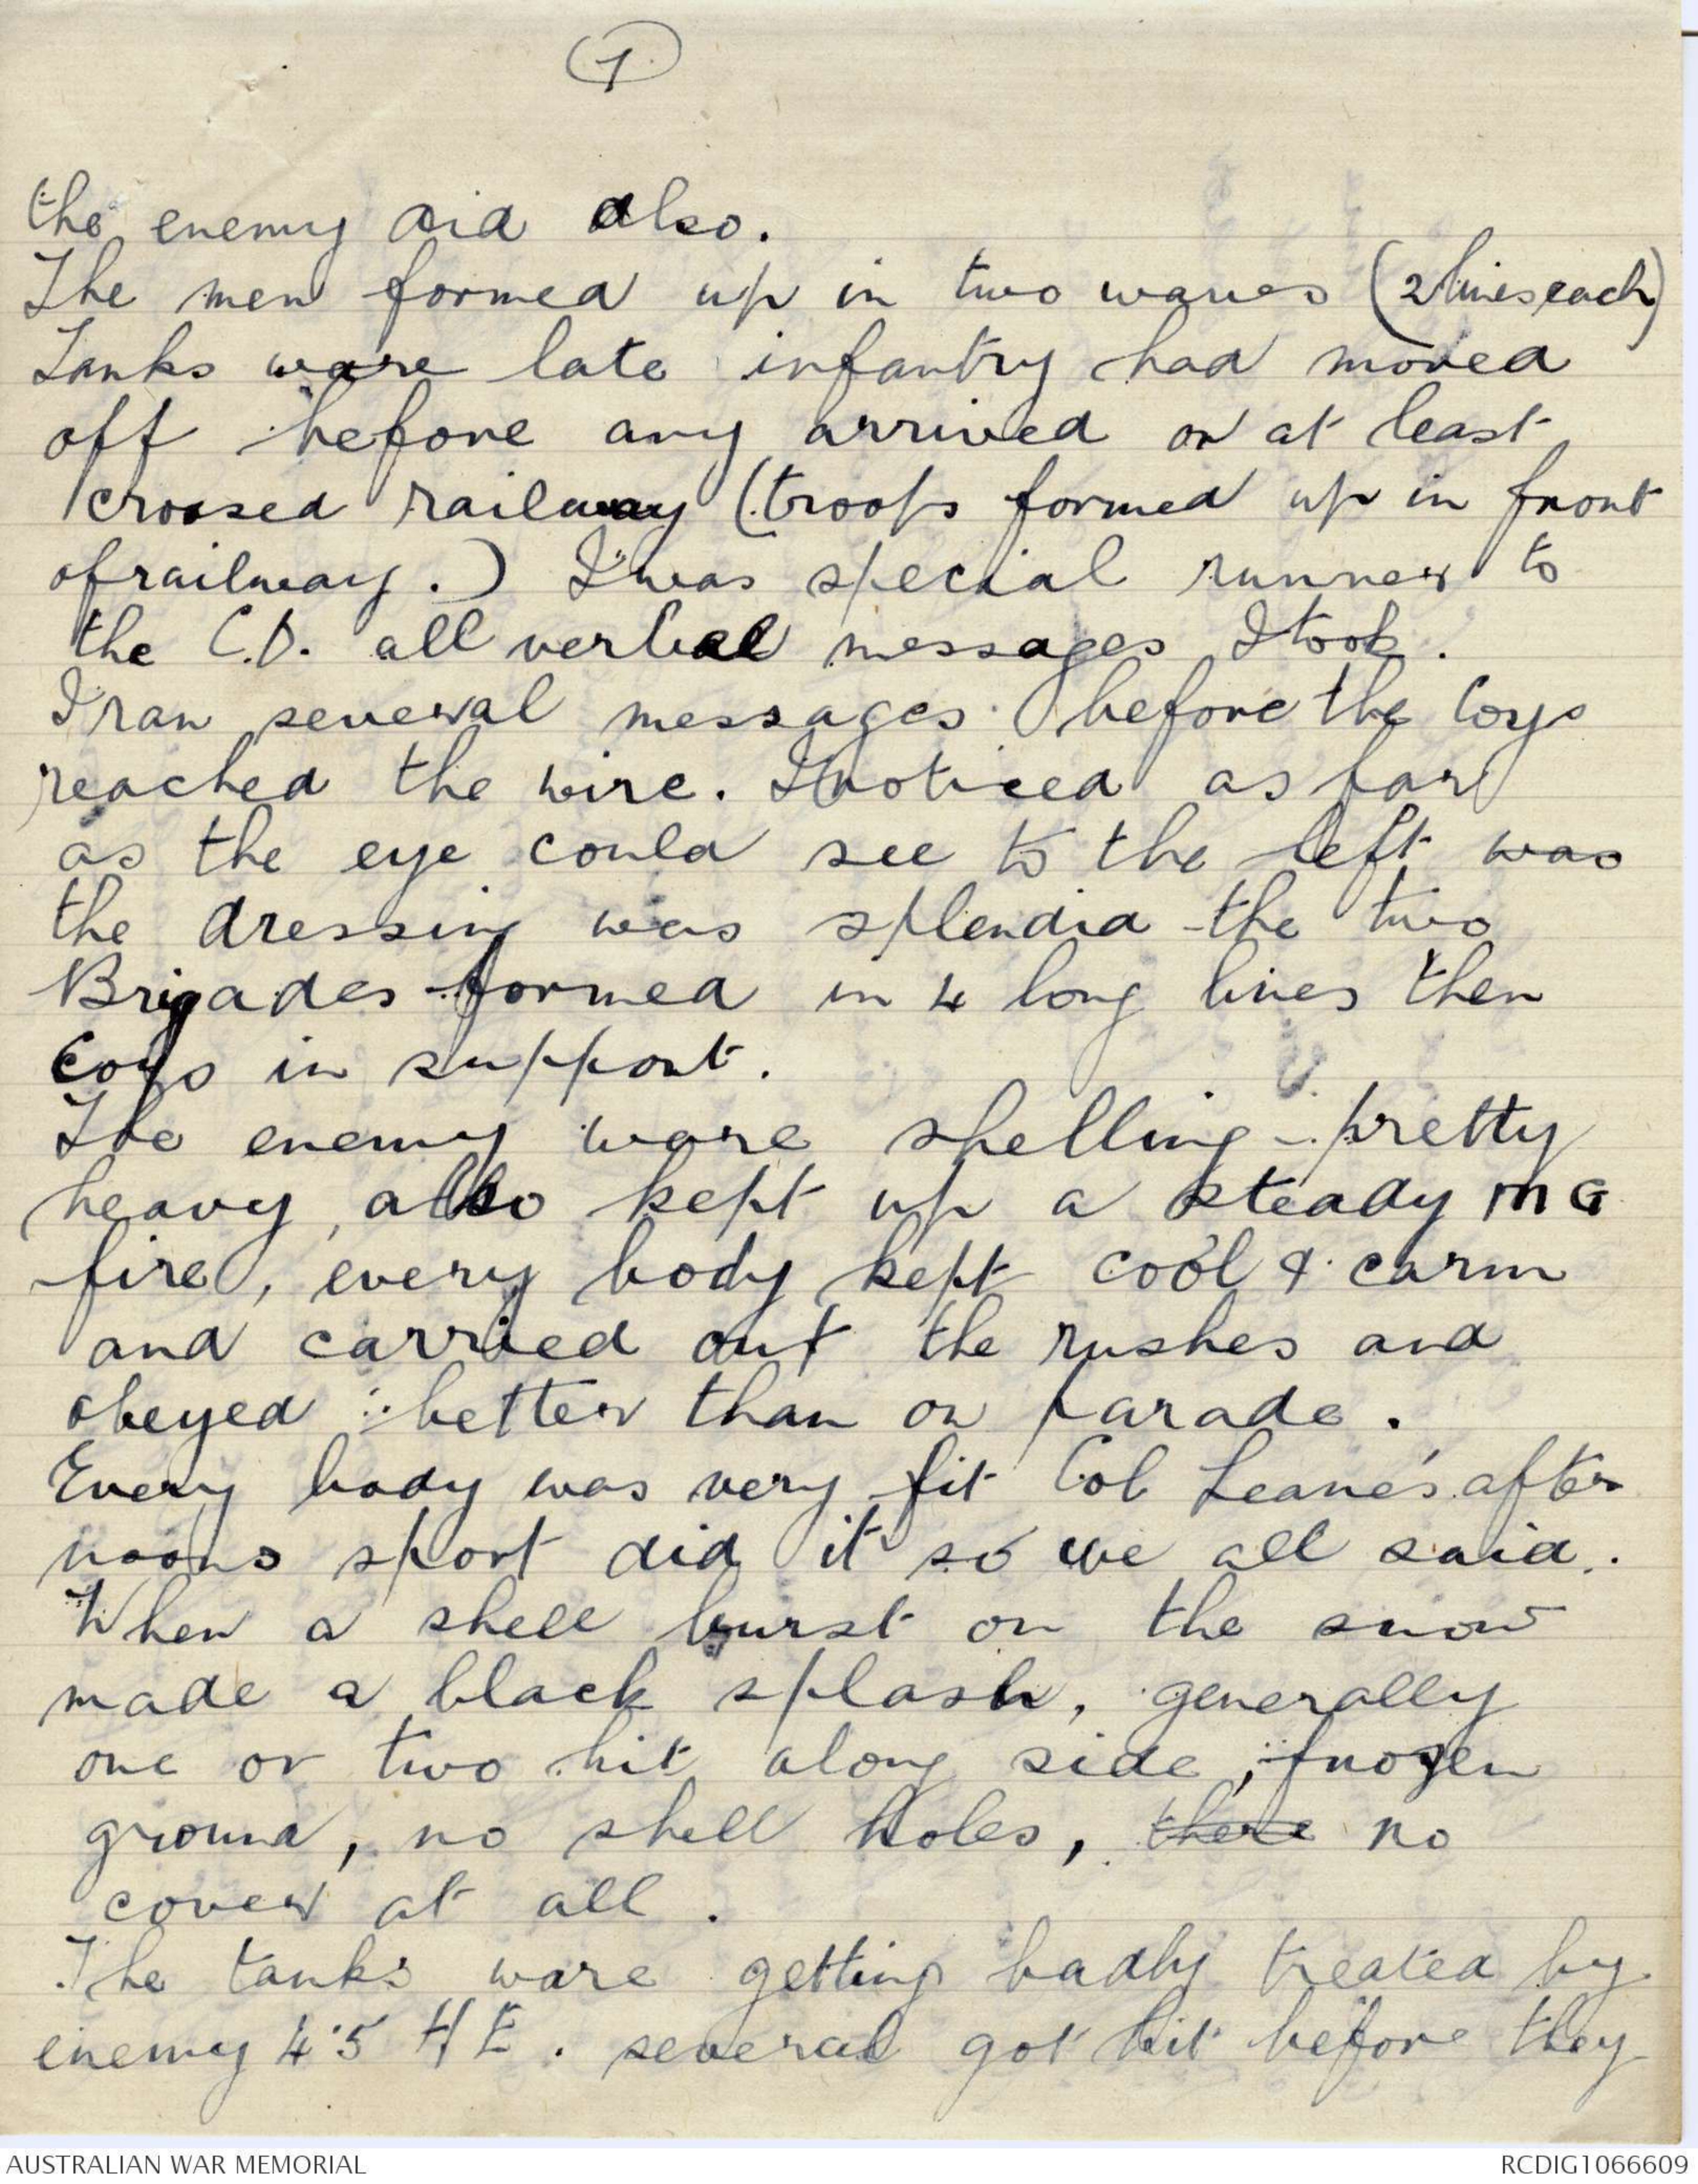 1
the enemy did also.
The men formed up in two waves (2 lines each)
Tanks ware late infantry had moved
off before any arrived or at least
crossed railway (troops formed up in front
of railway.) I was special runner to
the C.O. all verbal messages I took.
I ran several messages before the Coys
reached the wire. I noticed as far
as the eye could see to the left was
the dressing was splendid the two
Brigades formed in 4 long lines then
Coys in support.
The enemy ware shelling pretty
heavy, also kept up a steady MG
fire, every body kept cool & carm
and carried out the rushes and
obeyed better than on parade.
Every body was very fit Col Leane's after
noons sport did it so we all said.
When a shell burst on the snow
made a black splash, generally
one or two hit along side, frozen
ground, no shell holes, there no
cover at all.
The tanks ware getting badly treated by
enemy 4.5 HE. several got hit before they
AUSTRALIAN WAR MEMORIAL
RCDIG1066609